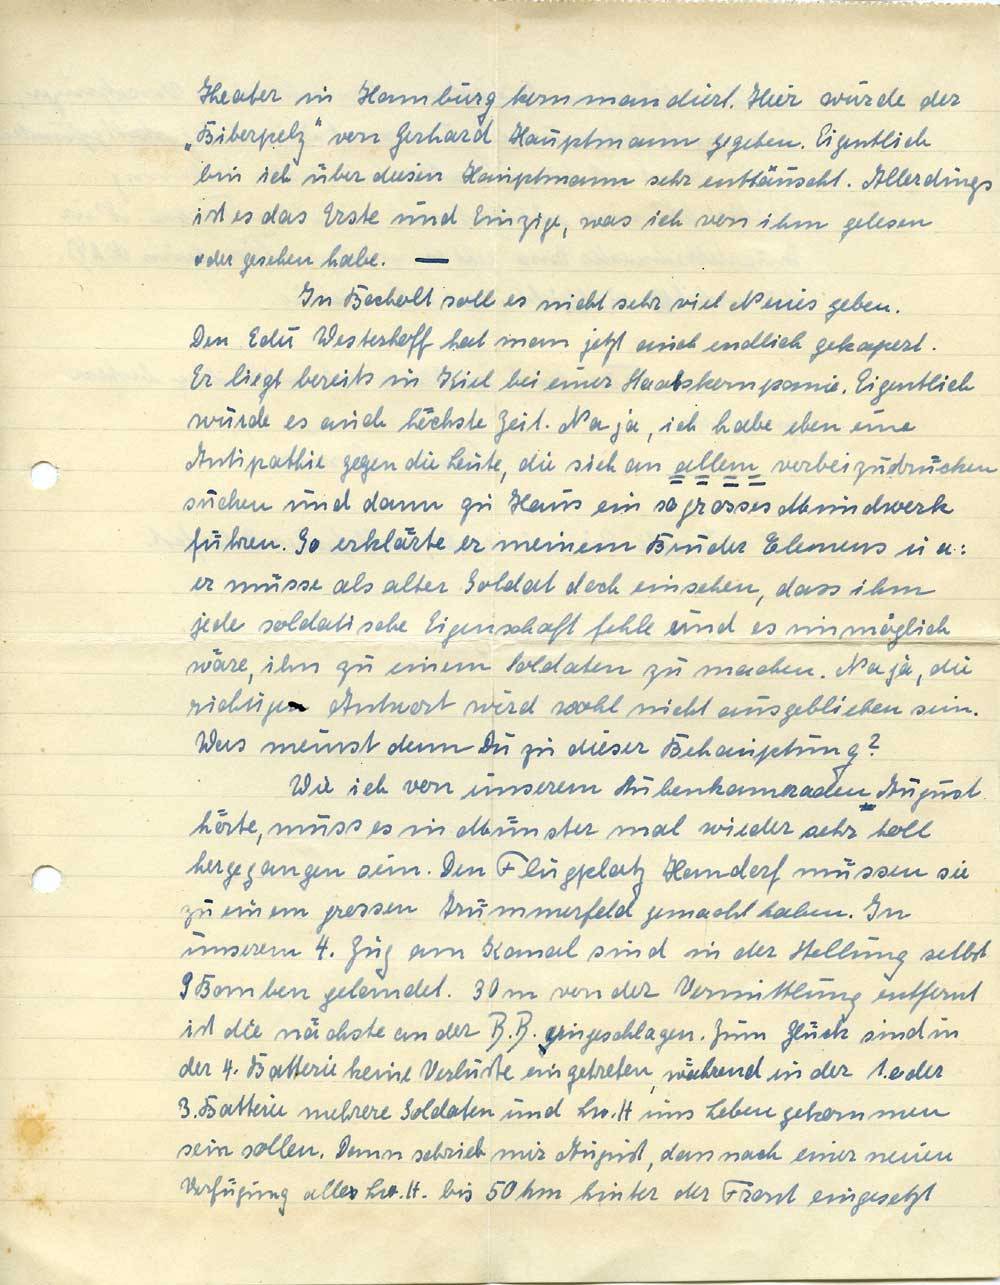 Theater in Hamburg kommandiert. Hier wurde der
„Biberpelz" von Gerhard Hauptmann gegeben. Eigentlich
bin ich über diesen Hauptmann sehr enttäuscht. Allerdings
ist es das Erste und Einzige, was ich von ihm gelesen
oder gesehen habe. —
In Bocholt soll es nicht sehr viel Neues geben.
Den Edu Westerhoff hat man jetzt auch endlich gekapert.
Er liegt bereits in Kiel bei einer Stabskompanie. Eigentlich
wurde es auch höchste Zeit. Na ja, ich habe eben eine
Antipathie gegen die Leute, die sich an allem vorbeizudrücken
suchen und dann zu Haus ein so grosses Mundwerk
führen. So erklärte er meinem Bruder Clemens u. a.:
er müsse als alter Soldat doch einsehen, dass ihm
jede soldatische Eigenschaft fehle und es unmöglich
wäre, ihn zu einem Soldaten zu machen. Na ja, die
richtige Antwort wird wohl nicht ausgeblieben sein.
Was meinst denn Du zu dieser Behauptung?
Wie ich von unserem Stubenkameraden August
hörte, muss es in Münster mal wieder sehr toll
hergegangen sein. Den Flugplatz Handorf müssen sie
zu einem grossen Trümmerfeld gemacht haben. In
unserem 4. Zug am Kanal sind in der Stellung selbst
9 Bomben gelandet. 30 m von der Vermittlung entfernt
ist die nächste an der B.B. eingeschlagen. Zum Glück sind in
der 4. Batterie keine Verluste eingetreten, während in der 1. oder
3. Batterie mehrere Soldaten und Lw. H ums Leben gekommen
sein sollen. Dann schrieb mir August, dass nach einer neuen
Verfügung alle Lw. H. bis 50 km hinter der Front eingesetzt